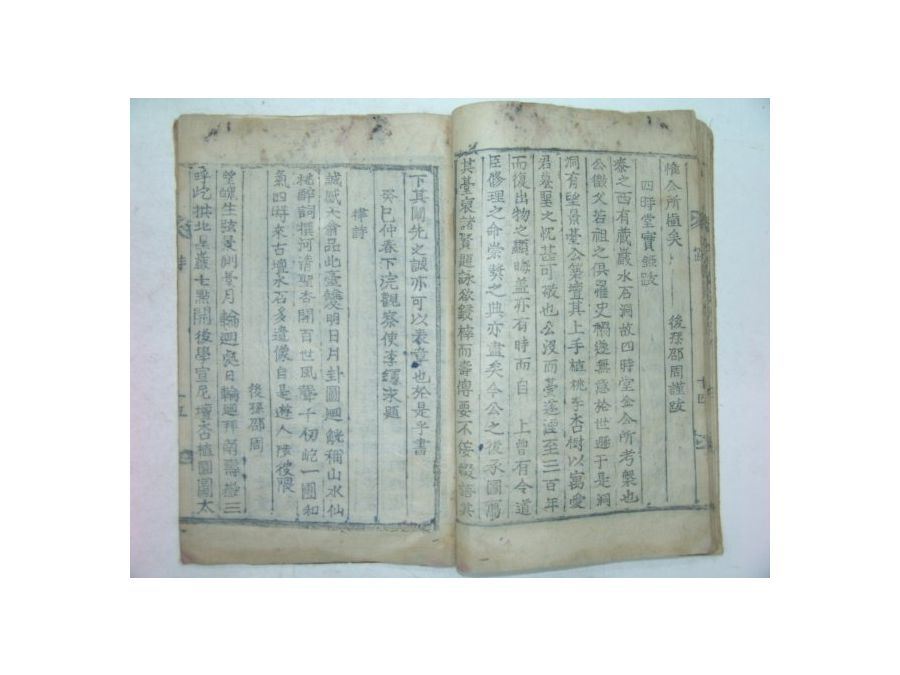 惟公所植矣 後孫邵周謹跋
四時堂實錄跋
泰之西有藏巖水石洞故四時堂金公所考槃也
公儆父若祖之俱罹史禍遂無意於世懸于是洞
洞有望景臺公築壇其上手植桃李杏樹以寓愛
君慕聖之忱甚可敬也公沒而臺遂湮至三百年
而復出物之顯晦盖亦有時而自 上曾有令道
臣修理之命崇奬之典亦盡矣今公之後承圖
其臺裒諸賢題詠欲鋟梓而壽傳要不侫綴語其
下其闡先之誠亦可以表章也於是乎書
癸巳仲春下浣觀察使李 題
律詩
誠感天翁品此臺 明日月卦圖廻 稱山水仙
桃醉詞撰河淸聖杏開百世風聲千仞屹一團和
氣四時來古壇水石多遺像自是遊人 彼隈
後孫邵周
生弦 月輪廻 日輪廻拜南壽 三
呼屹拱北星巖七點開後學宣尼壇杏植園圖太
詩
十四
十五